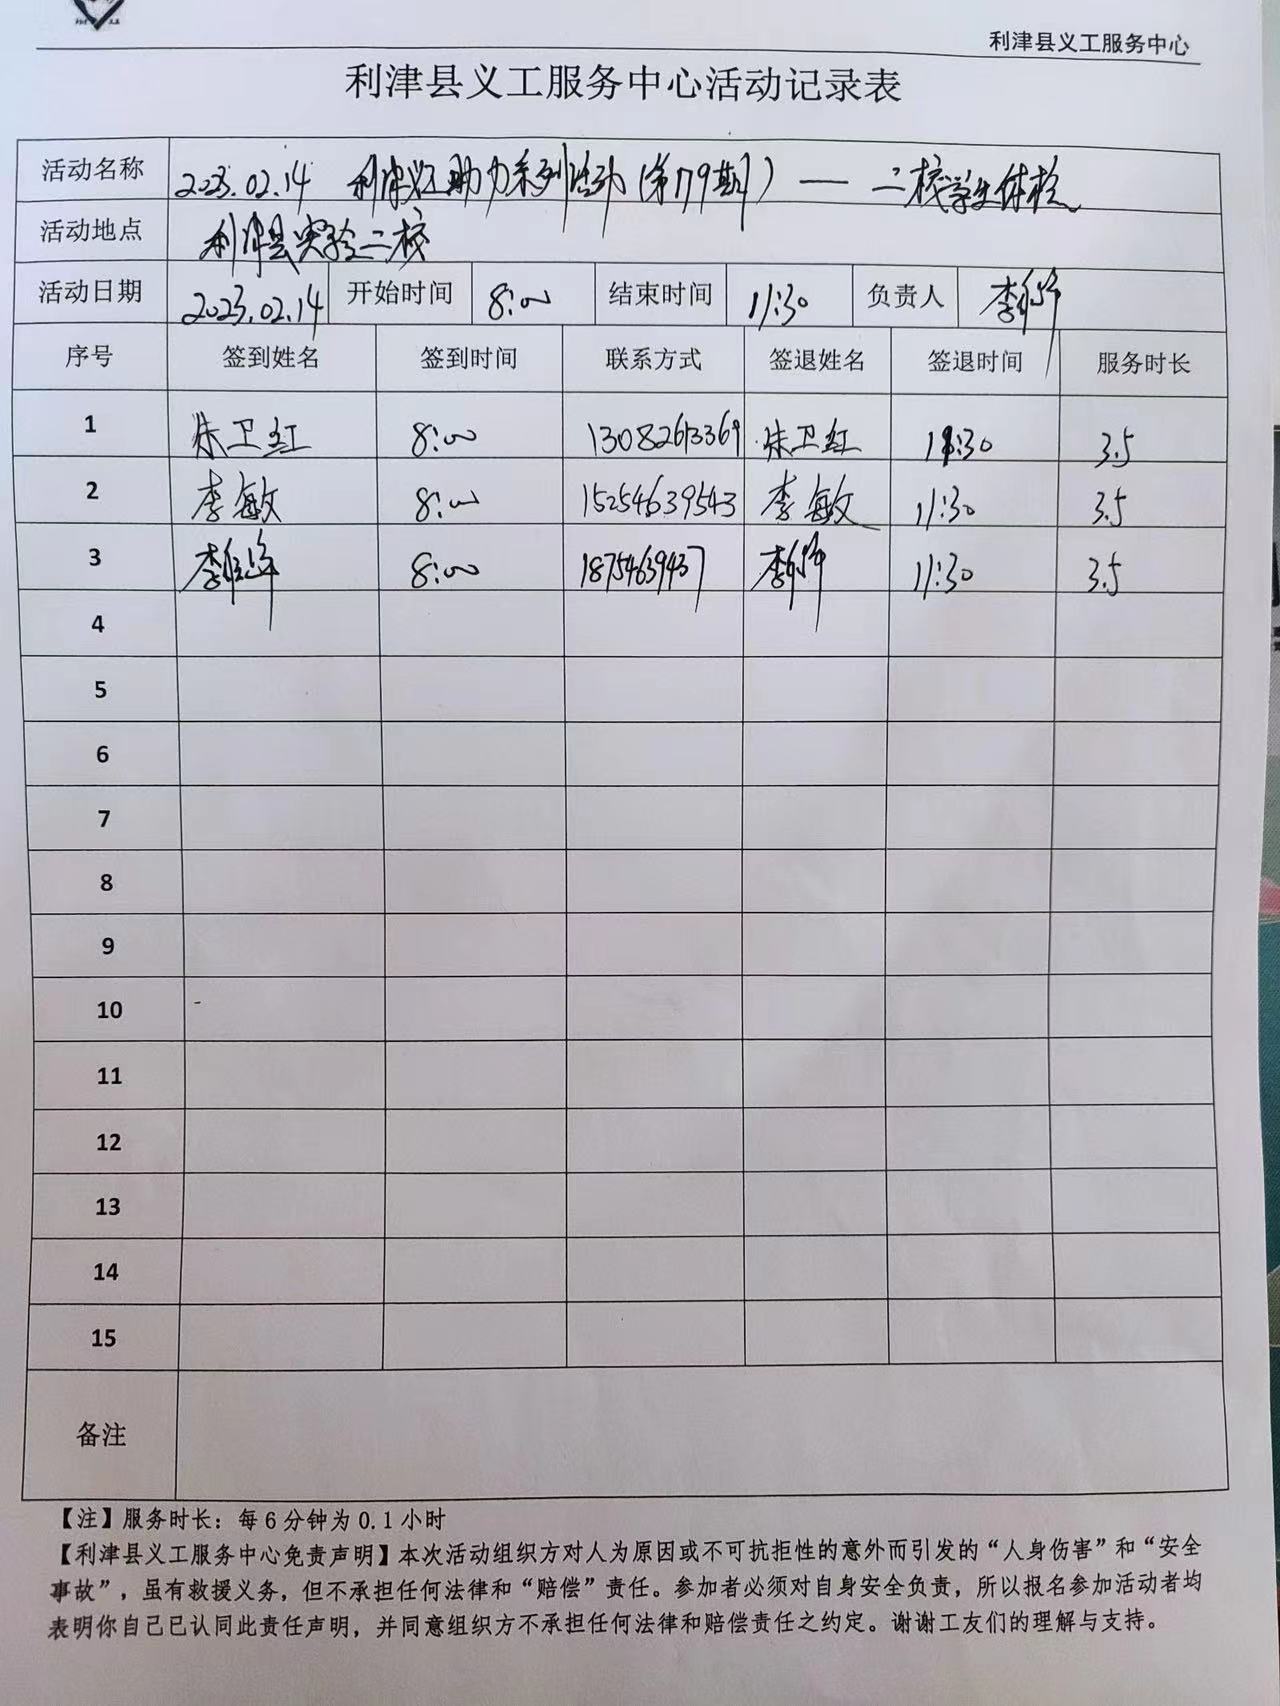 利津县义工服务中心
利津县义工服务中心活动记录表
活动名称 2023.02.14 利津义工助力系列活动(第179期) — 二校学生体检
活动地点 利津县实验二校
活动日期 2023.02.14 开始时间 8:00 结束时间 11:30 负责人 李
序号 签到姓名 签到时间 联系方式 签退姓名 签退时间 服务时长
1 朱卫红 8:00 13082613369 朱卫红 11:30 3.5
2 李敏 8:00 15254639543 李敏 11:30 3.5
3 李 8:00 18754639437 李 11:30 3.5
4
5
6
7
8
9
10
11
12
13
14
15
备注
【注】服务时长：每6分钟为0.1小时
【利津县义工服务中心免责声明】本次活动组织方对人为原因或不可抗拒性的意外而引发的“人身伤害”和“安全
事故”，虽有救援义务，但不承担任何法律和“赔偿”责任。参加者必须对自身安全负责，所以报名参加活动者均
表明你自己已认同此责任声明，并同意组织方不承担任何法律和赔偿责任之约定。谢谢工友们的理解与支持。